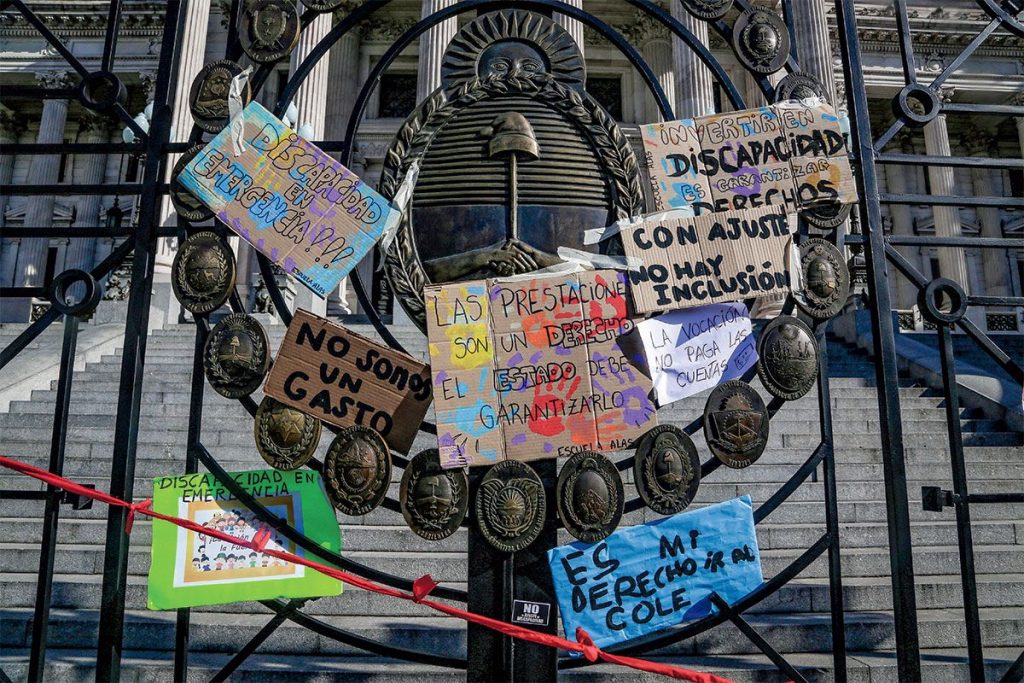 DISCAPACIDAD
EN
EMERGENCIA!!!
ESCUELA ALAS
INVERTIR EN
DISCAPACIDAD
ES GARANTIZAR
DERECHOS
ESCUELA
ALAS
CON AJUSTE
NO HAY
INCLUSIÓN
LA VOCACIÓN
NO PAGA LAS
CUENTAS
LAS PRESTACIONE
SON UN DERECHO
EL ESTADO DEBE
GARANTIZARLO
ESCUELA ALAS
NO SOMOS
UN
GASTO
DISCAPACIDAD EN
EMERGENCIA
la Fuer
ES MI
DERECHO IR AL
COLE
NO